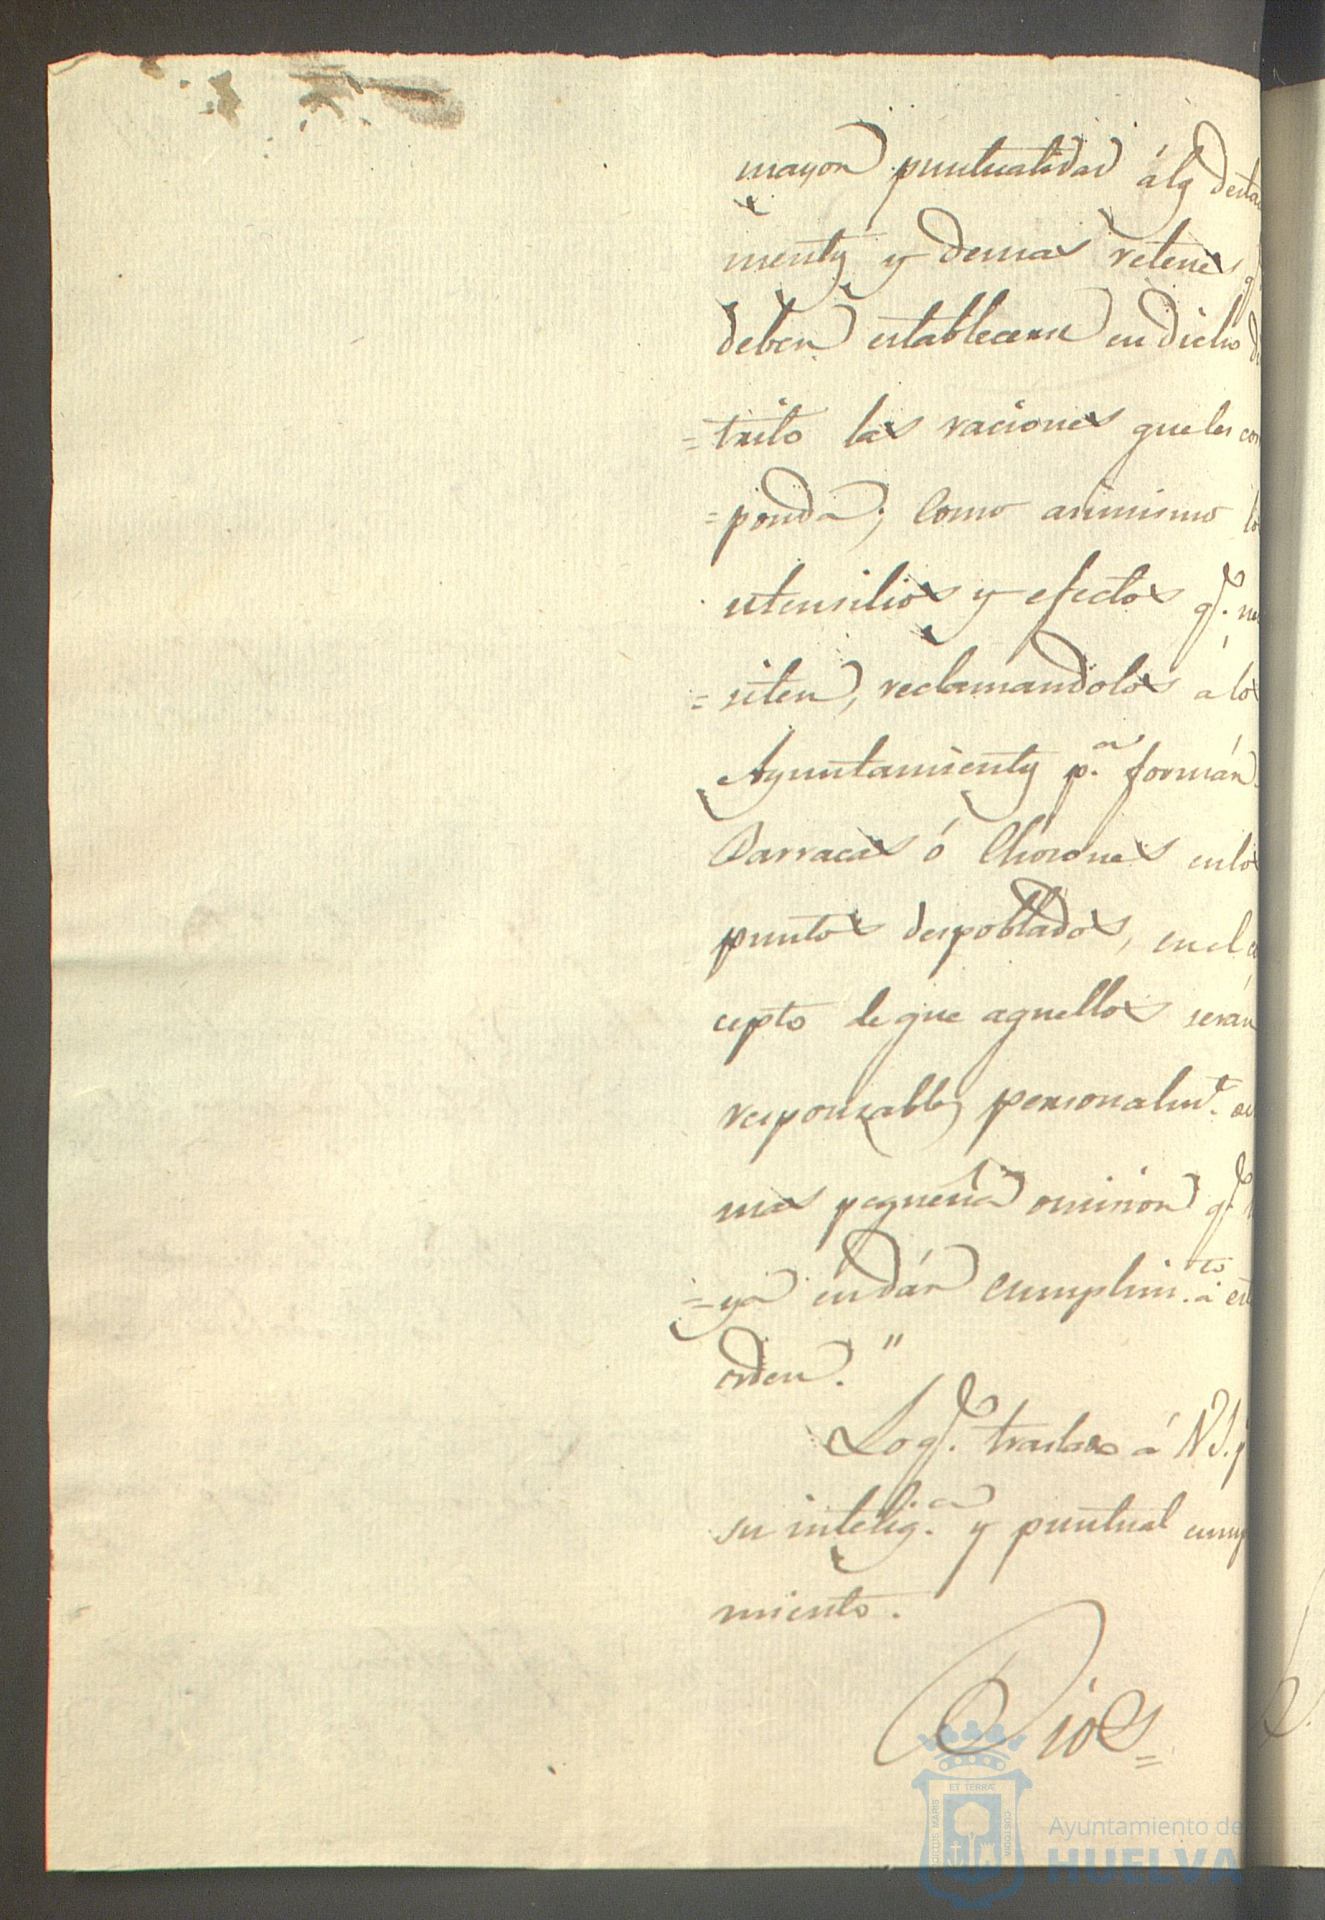 mayor puntualidad á los desta
mentos y demas retenes q
deben establecerse en dicho di
=trito las raciones que les cor
=ponda; como asimismo lo
utensilios y efectos q.e ne
=siten, reclamandolos a los
Ayuntamientos p.a formar
Barracas ó Chozones en los
puntos despoblados, en el
cepto de que aquellos serán
responsables personalm.te
mas pequeña omision q.e
=ya en dár cumplim.to á est
orden."
Lo q.e traslado á V.S. p
su intelig.a y puntual cump
miento.
Dios=
ET TERRÆ
PORTUS MARIS
CUSTODIA
Ayuntamiento de
HUELVA